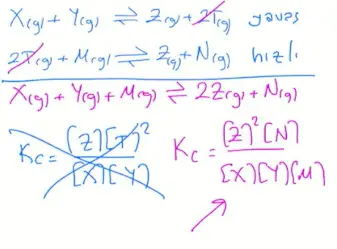 X(g) + Y(g) ⇌ Z(g) + 2T(g) yavaş
2T(g) + M(g) ⇌ Z(g) + N(g) hızlı
X(g) + Y(g) + M(g) ⇌ 2Z(g) + N(g)
Kc = [Z][T]² / [X][Y]
Kc = [Z]²[N] / [X][Y][M]